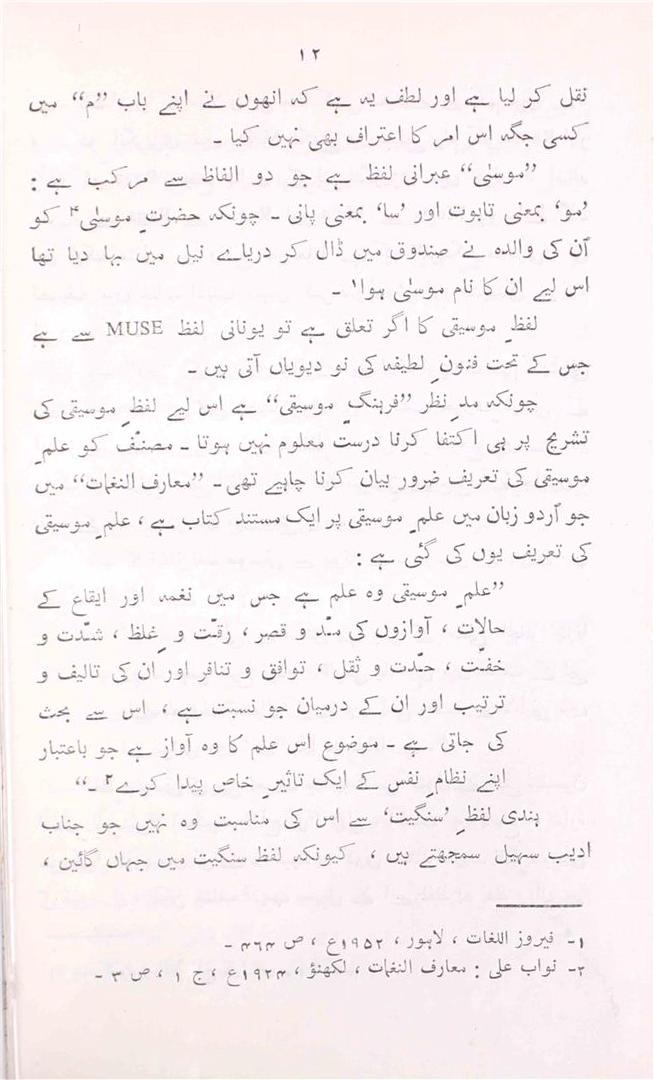 ۱۲
نقل کر لیا ہے اور لطف یہ ہے کہ انھوں نے اپنے باب ”م“ میں
کسی جگہ اس امر کا اعتراف بھی نہیں کیا ۔
”موسیٰ“ عبرانی لفظ ہے جو دو الفاظ سے مرکب ہے :
’مو‘ بمعنی تابوت اور ’سا‘ بمعنی پانی ۔ چونکہ حضرتِ موسیٰ۴ کو
اُن کی والدہ نے صندوق میں ڈال کر دریاے نیل میں بہا دیا تھا
اس لیے ان کا نام موسیٰ ہوا۱ ۔
لفظِ موسیقی کا اگر تعلق ہے تو یونانی لفظ MUSE سے ہے
جس کے تحت فنونِ لطیفہ کی نو دیویاں آتی ہیں ۔
چونکہ مدِ نظر ”فرہنگِ موسیقی“ ہے اس لیے لفظِ موسیقی کی
تشریح پر ہی اکتفا کرنا درست معلوم نہیں ہوتا ۔ مصنّف کو علمِ
موسیقی کی تعریف ضرور بیان کرنا چاہیے تھی ۔ ”معارف النغمات“ میں
جو اُردو زبان میں علمِ موسیقی پر ایک مستند کتاب ہے ، علمِ موسیقی
کی تعریف یوں کی گئی ہے :
”علمِ موسیقی وہ علم ہے جس میں نغمہ اور ایقاع کے
حالات ، آوازوں کی مّد و قصر ، رقّت و غلظ ، شدّت و
خفّت ، حدّت و ثقل ، توافق و تنافر اور ان کی تالیف و
ترتیب اور ان کے درمیان جو نسبت ہے ، اس سے بحث
کی جاتی ہے ۔ موضوع اس علم کا وہ آواز ہے جو باعتبار
اپنے نظامِ نفس کے ایک تاثیرِ خاص پیدا کرے۲ ۔“
ہندی لفظِ ’سنگیت‘ سے اس کی مناسبت وہ نہیں جو جناب
ادیب سہیل سمجھتے ہیں ، کیونکہ لفظ سنگیت میں جہاں گائین ،
۱۔ فیروز اللغات ، لاہور ، ۱۹۵۲ع ، ص ۴۶۴ ۔
۲۔ نواب علی : معارف النغمات ، لکھنؤ ، ۱۹۲۴ع ، ج ۱ ، ص ۳ ۔